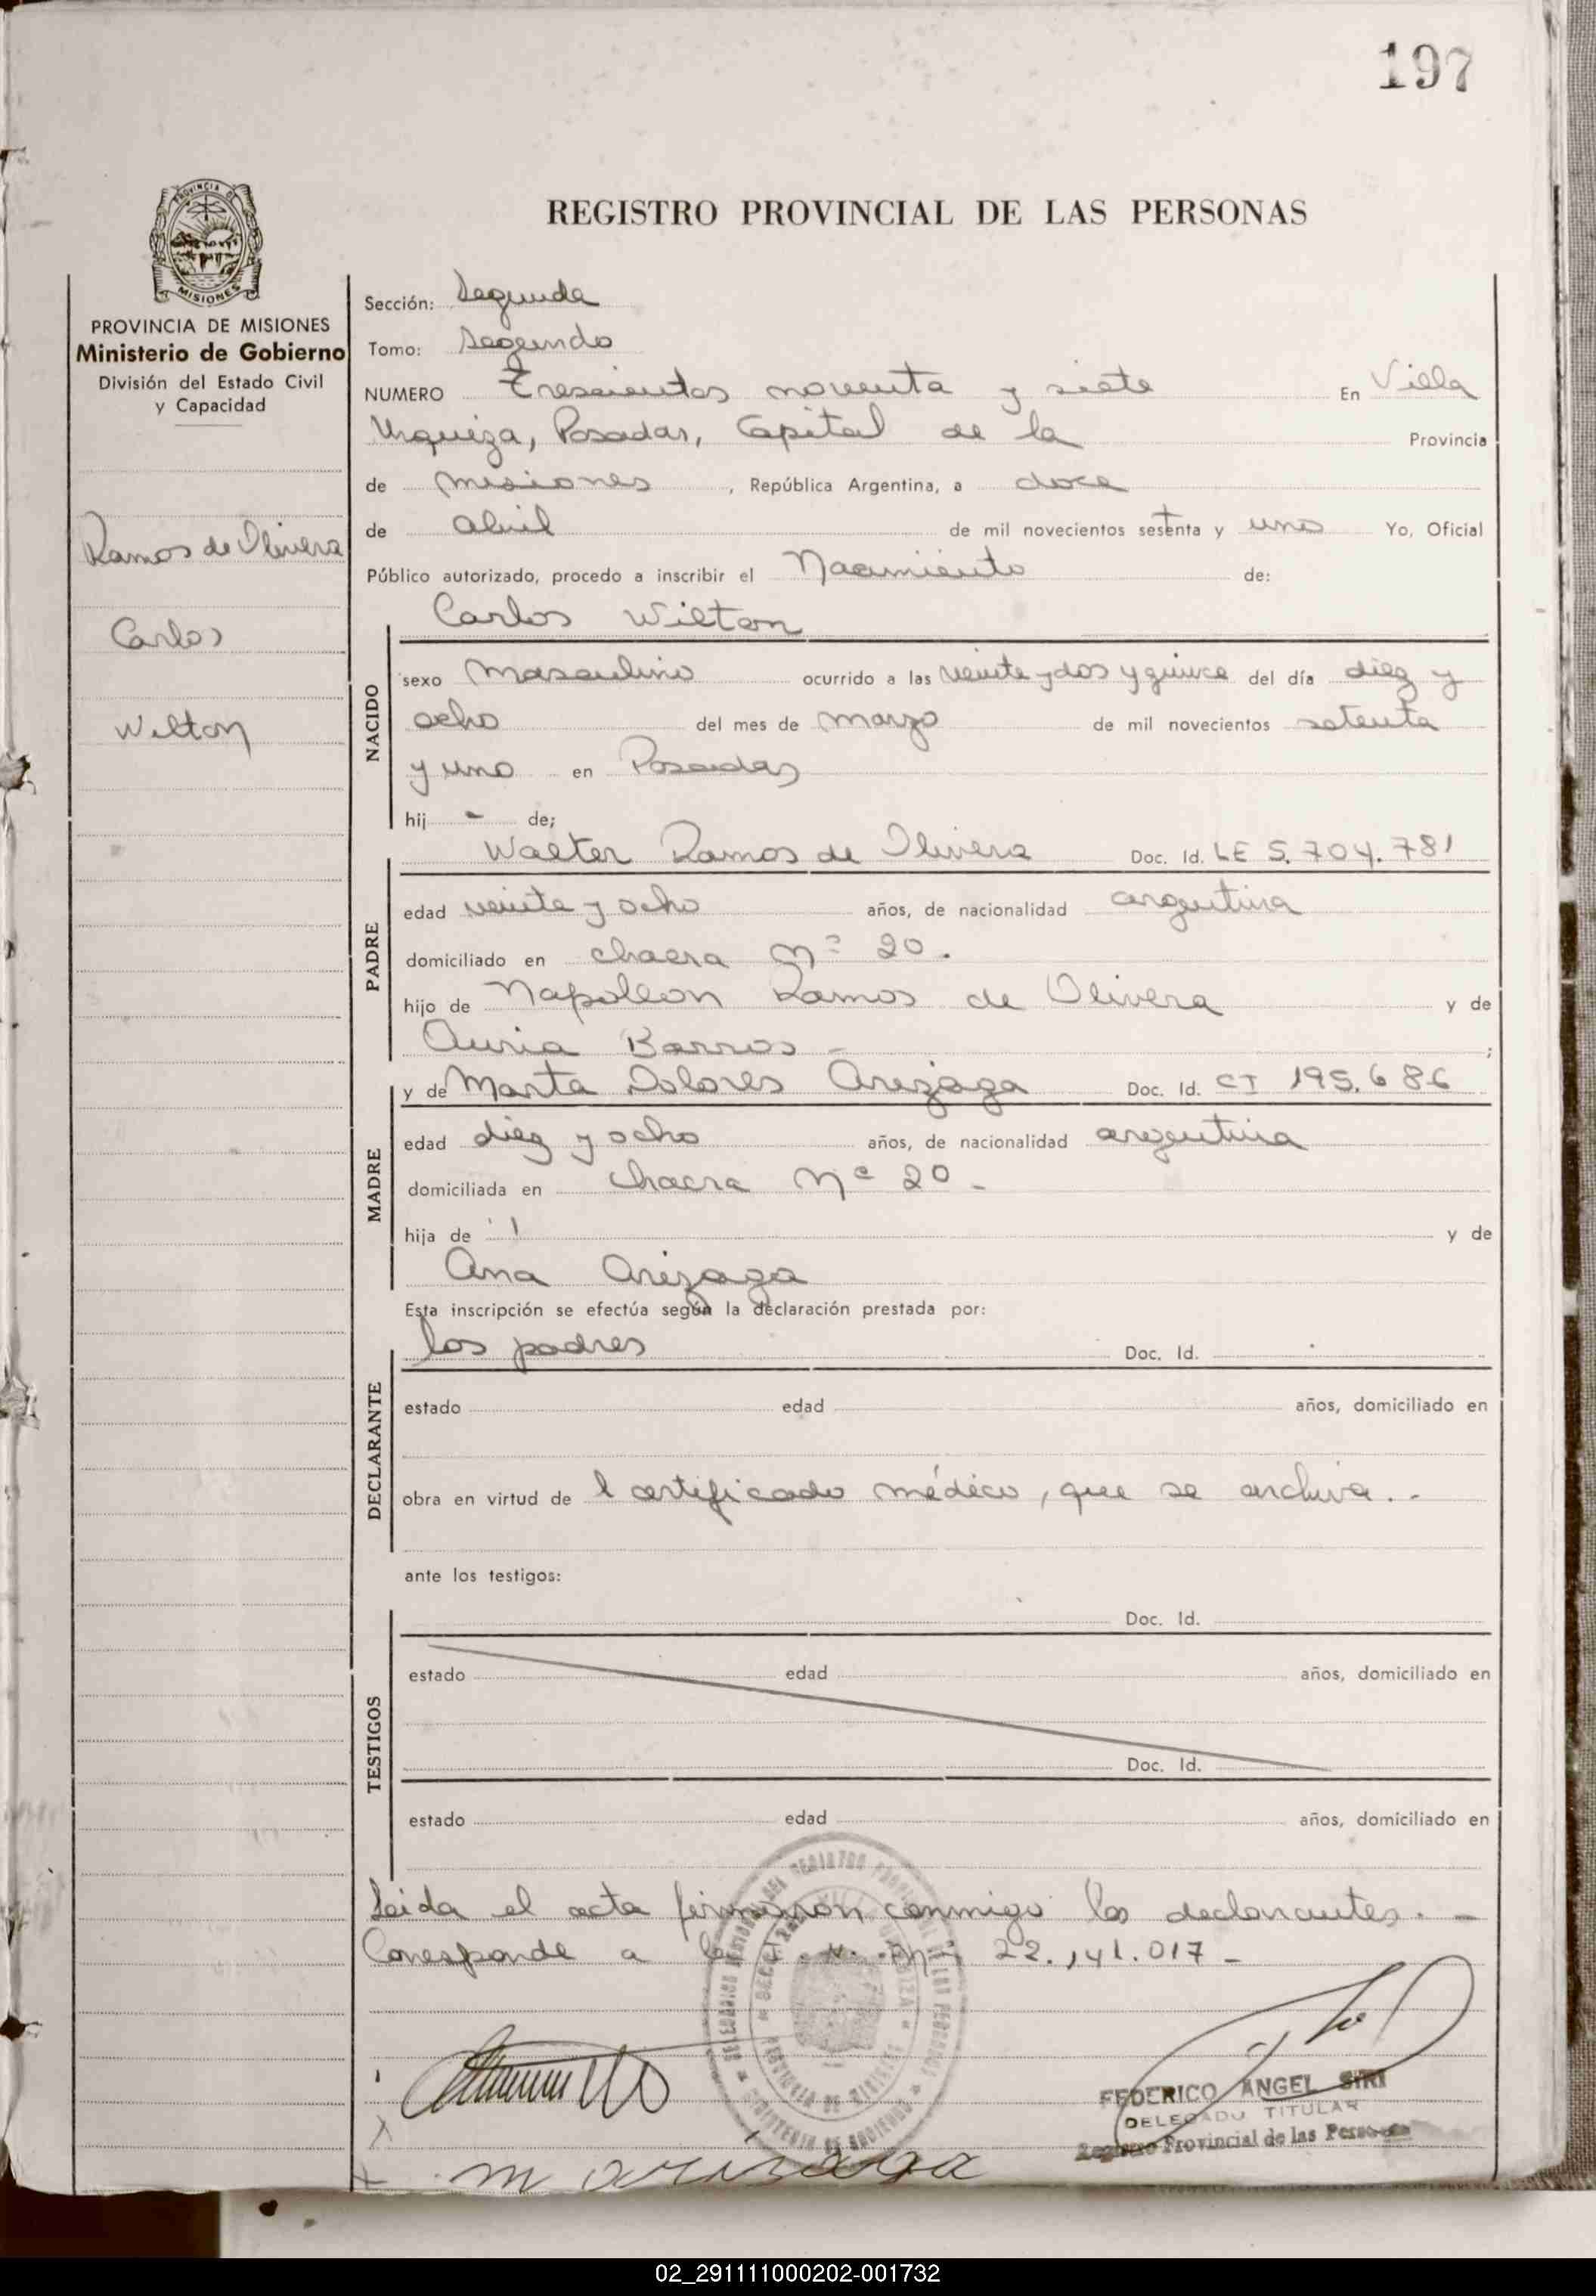 197
REGISTRO PROVINCIAL DE LAS PERSONAS
PROVINCIA DE MISIONES
PROVINCIA DE MISIONES
Ministerio de Gobierno
División del Estado Civil
y Capacidad
Ramos de Olivera
Carlos
Wilton
Sección: Segunda
Tomo: Segundo
NUMERO Trescientos noventa y siete En Villa
Urquiza, Posadas, Capital de la Provincia
de Misiones, República Argentina, a doce
de abril de mil novecientos setenta y uno Yo, Oficial
Público autorizado, procedo a inscribir el Nacimiento de:
Carlos Wilton
NACIDO
sexo Masculino ocurrido a las veinte y dos y quince del día diez y
ocho del mes de marzo de mil novecientos setenta
y uno en Posadas
hij - de;
Walter Ramos de Olivera Doc. Id. LE 5.704.781
PADRE
edad veinte y ocho años, de nacionalidad argentina
domiciliado en chacra Nº 20.
hijo de Napoleon Ramos de Olivera y de
Auria Barros - ;
y de Marta Dolores Arizaga Doc. Id. CI 195.686
MADRE
edad diez y ocho años, de nacionalidad argentina
domiciliada en chacra Nº 20 -
hija de y de
Ana Arizaga
Esta inscripción se efectúa según la declaración prestada por:
los padres Doc. Id.
DECLARANTE
estado edad años, domiciliado en
obra en virtud de l certificado médico, que se archiva. -
ante los testigos:
Doc. Id.
TESTIGOS
estado edad años, domiciliado en
Doc. Id.
estado edad años, domiciliado en
Leida el acta firmaron conmigo los declarantes. -
Corresponde a la 22.141.017 -
FEDERICO ANGEL SIRI
DELEGADO TITULAR
Registro Provincial de las Personas
m arizaga
02_291111000202-001732